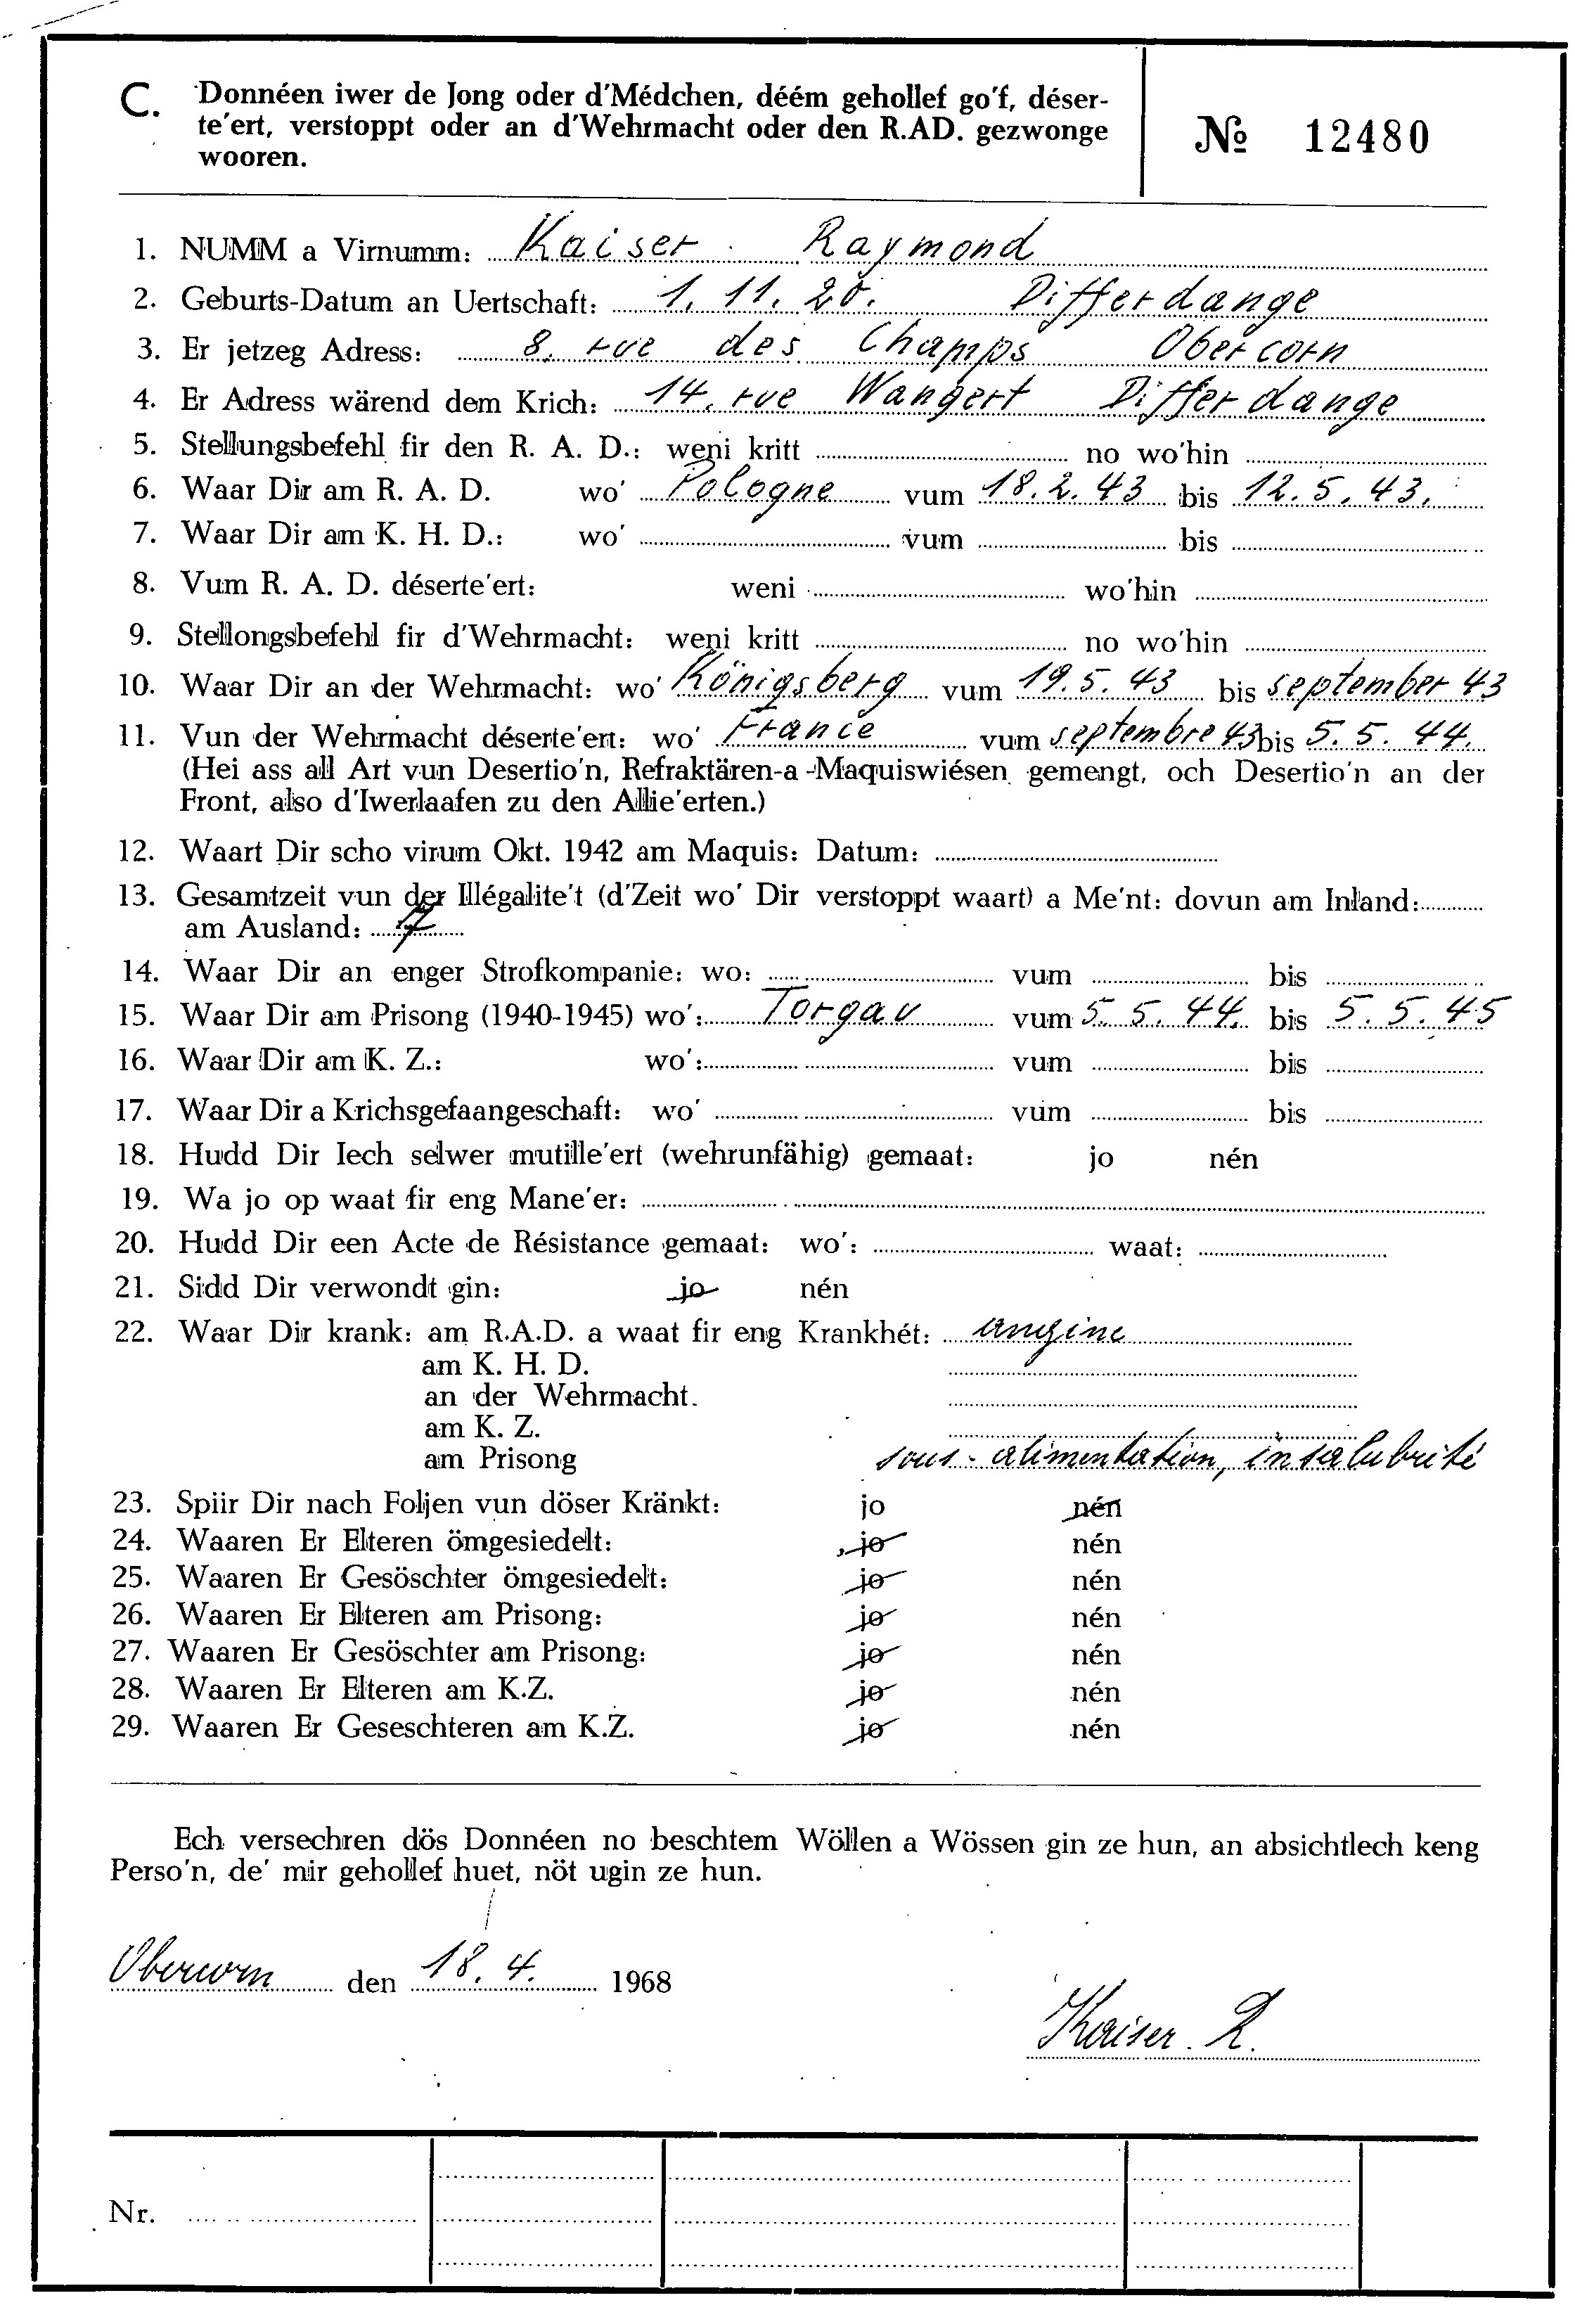 C. Donnéen iwer de Jong oder d'Médchen, déém gehollef go'f, déser-
te'ert, verstoppt oder an d'Wehrmacht oder den R.AD. gezwonge
wooren.
№ 12480
1. NUMM a Virnumm: Kaiser Raymond
2. Geburts-Datum an Uertschaft: 1. 11. 20. Differdange
3. Er jetzeg Adress: 8. rue des Champs Obercorn
4. Er Adress wärend dem Krich: 14. rue Wangert Differdange
5. Stellungsbefehl fir den R. A. D.: weni kritt no wo'hin
6. Waar Dir am R. A. D. wo' Pologne vum 18. 2. 43 bis 12. 5. 43.
7. Waar Dir am K. H. D.: wo' vum bis
8. Vum R. A. D. déserte'ert: weni wo'hin
9. Stellongsbefehl fir d'Wehrmacht: weni kritt no wo'hin
10. Waar Dir an der Wehrmacht: wo' Königsberg vum 19. 5. 43 bis september 43
11. Vun der Wehrmacht déserte'ert: wo' France vum septembre 43 bis 5. 5. 44.
(Hei ass all Art vun Desertio'n, Refraktären-a -Maquiswiésen gemengt, och Desertio'n an der
Front, also d'Iwerlaafen zu den Allie'erten.)
12. Waart Dir scho virum Okt. 1942 am Maquis: Datum:
13. Gesamtzeit vun der Illégalite't (d'Zeit wo' Dir verstoppt waart) a Me'nt: dovun am Inland:
am Ausland: 7
14. Waar Dir an enger Strofkompanie: wo: vum bis
15. Waar Dir am Prisong (1940-1945) wo': Torgau vum 5. 5. 44. bis 5. 5. 45
16. Waar Dir am K. Z.: wo': vum bis
17. Waar Dir a Krichsgefaangeschaft: wo' vum bis
18. Hudd Dir Iech selwer mutille'ert (wehrunfähig) gemaat: jo nén
19. Wa jo op waat fir eng Mane'er:
20. Hudd Dir een Acte de Résistance gemaat: wo': waat:
21. Sidd Dir verwondt gin: jo nén
22. Waar Dir krank: am R.A.D. a waat fir eng Krankhét: angine
am K. H. D.
an der Wehrmacht.
am K. Z.
am Prisong sous-alimentation, insalubrité
23. Spiir Dir nach Foljen vun döser Kränkt: jo nén
24. Waaren Er Elteren ömgesiedelt: jo nén
25. Waaren Er Gesöschter ömgesiedelt: jo nén
26. Waaren Er Elteren am Prisong: jo nén
27. Waaren Er Gesöschter am Prisong: jo nén
28. Waaren Er Elteren am K.Z. jo nén
29. Waaren Er Geseschteren am K.Z. jo nén
Ech versechren dös Donnéen no beschtem Wöllen a Wössen gin ze hun, an absichtlech keng
Perso'n, de' mir gehollef huet, nöt ugin ze hun.
Obercorn den 18. 4. 1968
Kaiser. R.
Nr.